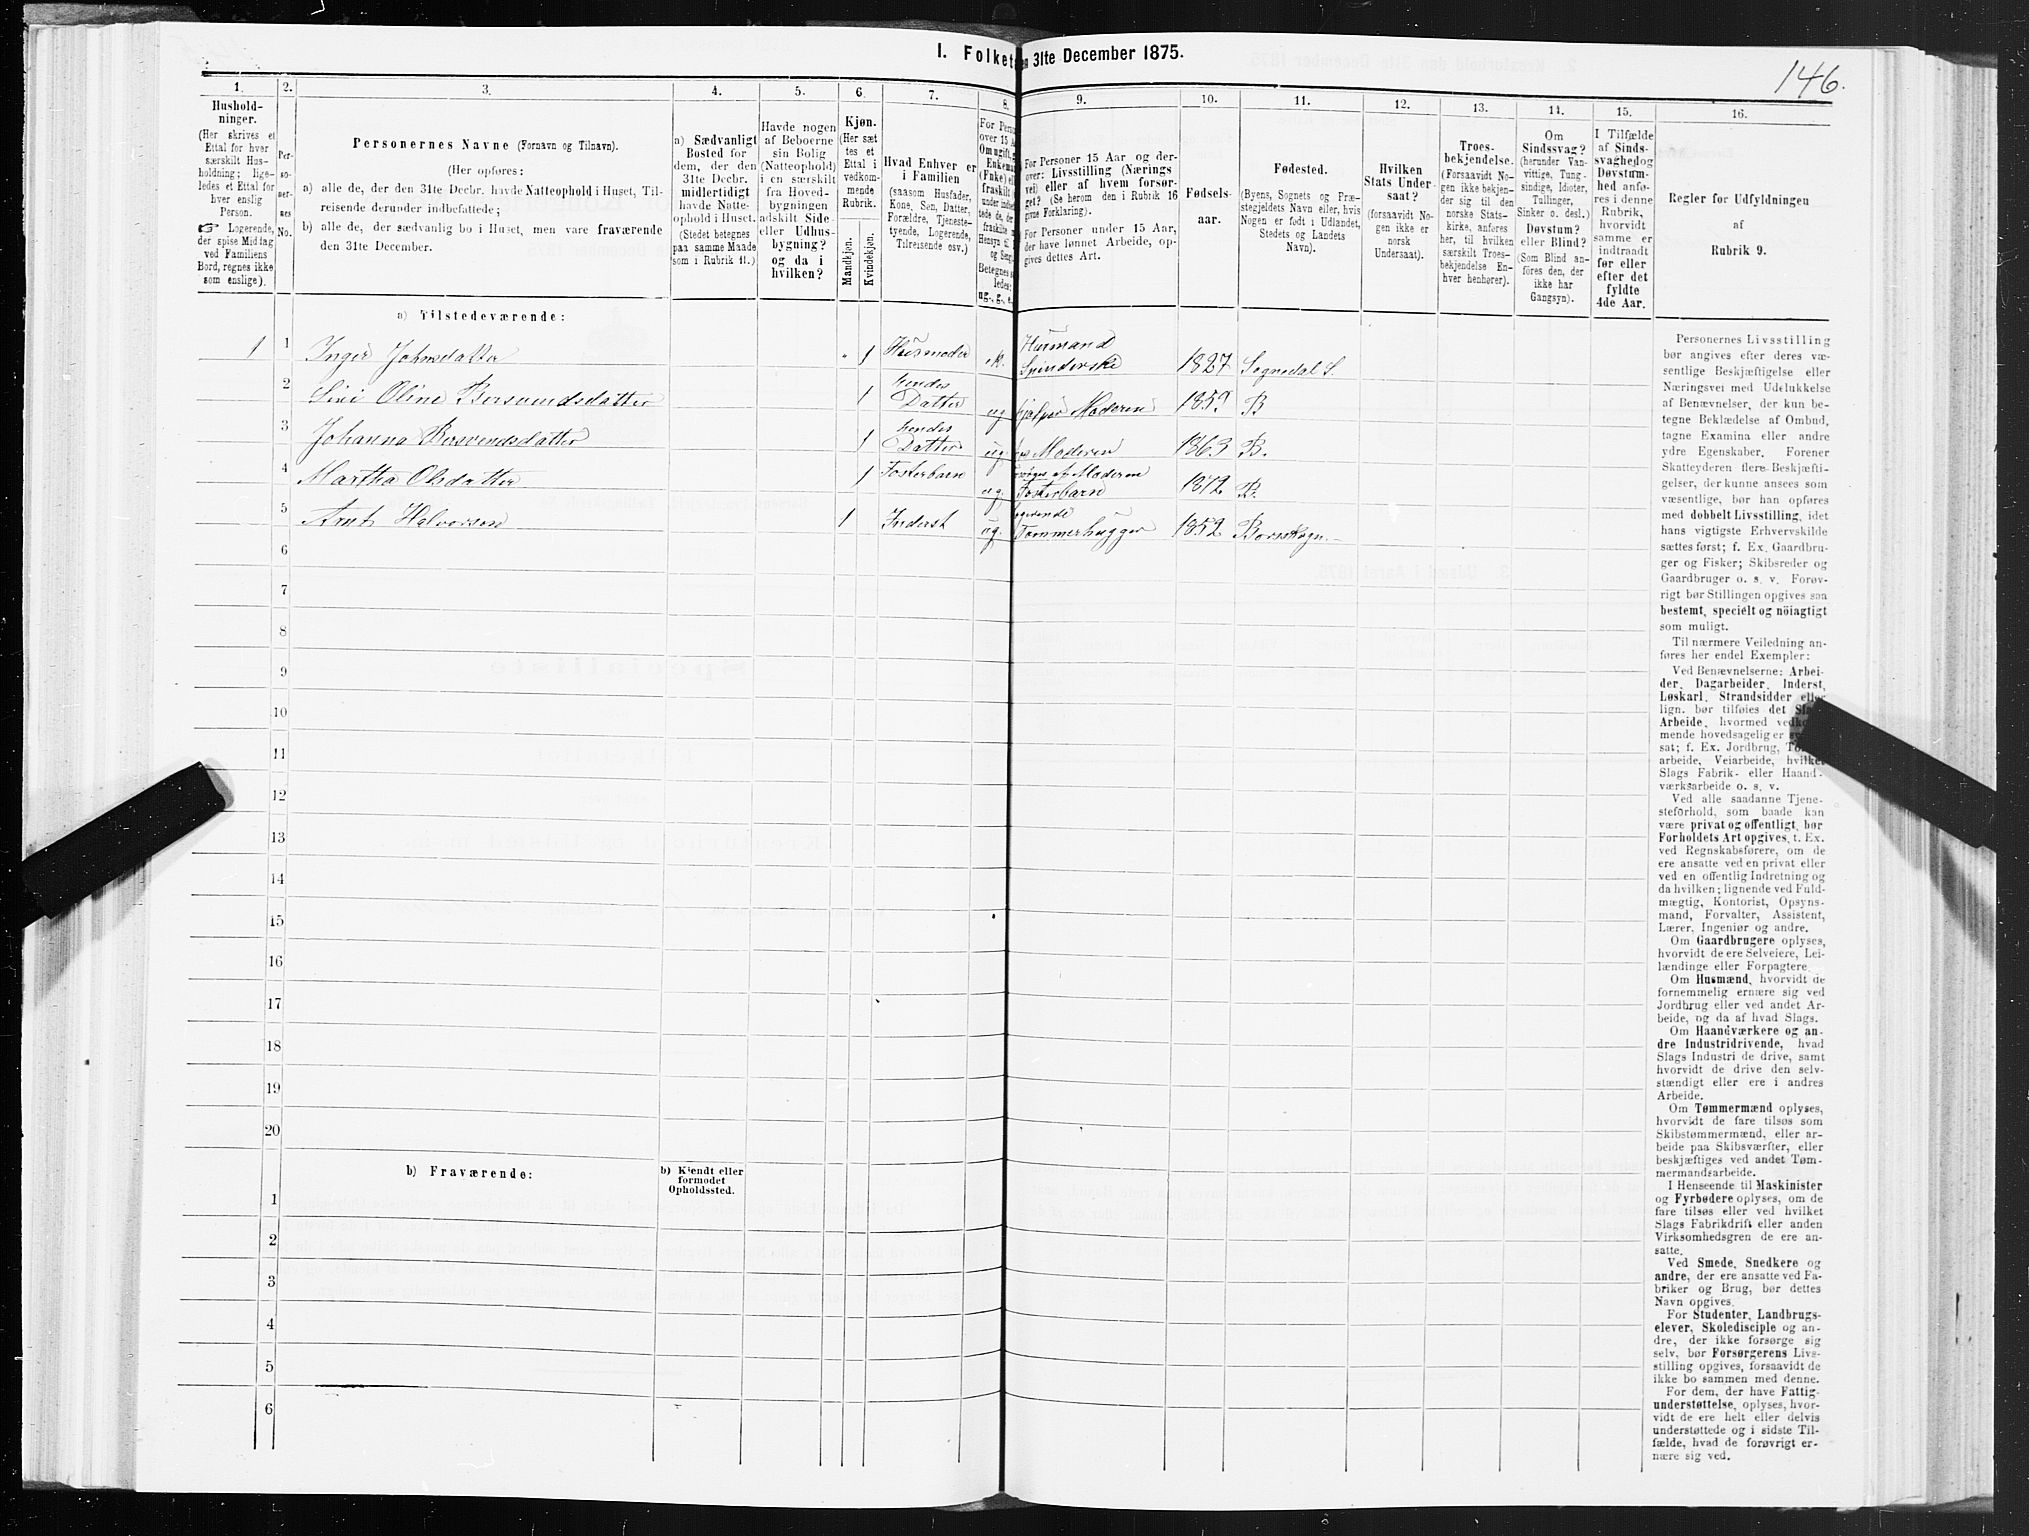 I. Folket
en 31te December 1875.
146.
1.
Hushold-
ninger.
(Her skrives et
Ettal for hver
særskilt Hus-
holdning; lige-
ledes et Ettal for
hver enslig
Person.
☞ Logerende,
der spise Middag
ved Familiens
Bord, regnes ikke
som enslige).
2.
Per-
so-
ner-
nes
No.
3.
Personernes Navne (Fornavn og Tilnavn).
(Her opføres:
a) alle de, der den 31te Decbr. havde Natteophold i Huset, Til-
reisende derunder indbefattede;
b) alle de, der sædvanlig bo i Huset, men vare fraværende
den 31te December.
4.
a) Sædvanligt
Bosted for
dem, der den
31te Decbr.
midlertidigt
havde Natte-
ophold i Huset.
(Stedet betegnes
paa samme Maade
som i Rubrik 11.)
5.
Havde nogen
af Beboerne
sin Bolig
(Natteophold)
i en særskilt
fra Hoved-
bygningen
adskilt Side-
eller Udhus-
bygning?
og da i
hvilken?
6.
Kjøn.
(Her sæt
tes et
Ettal i
vedkom-
mende
Rubrik.
Mandkjøn.
Kvindekjøn.
7.
Hvad Enhver er
i Familien
(saasom Husfader,
Kone, Søn, Datter,
Forældre, Tjeneste-
tyende, Logerende,
Tilreisende osv.)
8.
For Perso
over 15 A
Om ugift,
Enkema
(Enke) el
fraskilt
Betegnes s
ledes:
ug., g., e.
9.
For Personer 15 Aar og der-
over: Livsstilling (Nærings
vei) eller af hvem forsør-
get? (Se herom den i Rubrik 16
givne Forklaring).
For Personer under 15 Aar,
der have lønnet Arbeide, op-
gives dettes Art.
10.
Fødsels-
aar.
11.
Fødested.
(Byens, Sognets og Præ-
stegjeldets Navn eller, hvis
Nogen er født i Udlandet,
Stedets og Landets
Navn).
12.
Hvilken
Stats Under-
saat?
(forsaavidt No-
gen ikke er
norsk
Undersaat).
13.
Troes-
bekjendelse.
(Forsaavidt No-
gen ikke bekjen-
der sig til den
norske Stats-
kirke, anføres
her, til hvilken
særskilt Troes-
bekjendelse En-
hver henhører).
14.
Om
Sindssvag?
(herunder Van-
vittige, Tung-
sindige, Idioter,
Tullinger,
Sinker o. desl.)
Døvstum?
eller Blind?
(Som Blind an-
føres den, der
ikke har
Gangsyn).
15.
I Tilfælde
af Sinds-
svaghed og
Døvstum-
hed anfø-
res i denne
Rubrik,
hvorvidt
samme er
indtraadt
før eller
efter det
fyldte
4de Aar.
16.
Regler for Udfyldningen
af
Rubrik 9.
a) Tilstedeværende:
1 1 Inger Johnsdatter " 1 Husmoder e.k. Husmand Spinderske 1827 Sognedal S.
2 Siri Oline Bersvendsdatter 1 hendes Datter ug hjelper Moderen 1859 B
3 Johanna Bersvendsdatter 1 hendes Datter ug. Moderen 1863 B.
4 Martha Olsdatter 1 Fosterbarn ug. af Moderen Fosterbarn 1872 B.
5 Arnt Halvorsen 1 Inderst ug. Tømmerhugger 1852
6
7
8
9
10
11
12
13
14
15
16
17
18
19
20
b) Fraværende:
b) Kjendt eller
formodet
Opholdssted.
1
2
3
4
5
6
Personernes Livsstilling
bør angives efter deres væ-
sentlige Beskjæftigelse eller
Næringsvei med Udelukkelse
af Benævnelser, der kun be-
tegne Beklædelse af Ombud,
tagne Examina eller andre
ydre Egenskaber. Forener
Skatteyderen flere Beskjæfti-
gelser, der kunne ansees som
væsentlige, bør han opføres
med dobbelt Livsstilling, idet
hans vigtigste Erhvervskilde
sættes først; f. Ex. Gaardbru-
ger og Fisker; Skibsreder og
Gaardbruger o. s. v. Forøv-
rigt bør Stillingen opgives saa
bestemt, specielt og nöiagtigt
som muligt.
Til nærmere Veiledning an-
føres her endel Exempler:
Ved Benævnelserne: Arbei-
der, Dagarbeider, Inderst,
Løskarl, Strandsidder eller
lign. bør tilføies det Slags
Arbeide, hvormed vedkom-
mende hovedsagelig er syssel-
sat; f. Ex. Jordbrug, Tømmer-
arbeide, Veiarbeide, hvilket
Slags Fabrik- eller Haand-
værksarbeide o. s. v.
Ved alle saadanne Tjene-
steforhold, som baade kan
være privat og offentligt, bør
Forholdets Art opgives, t. Ex.
ved Regnskabsførere, om de
ere ansatte ved en privat eller
ved en offentlig Indretning og
da hvilken; lignende ved Fuld-
mægtig, Kontorist, Opsyns-
mand, Forvalter, Assistent,
Lærer, Ingeniør og andre.
Om Gaardbrugere oplyses,
hvorvidt de ere Selveiere, Lei-
lændinge eller Forpagtere.
Om Husmænd, hvorvidt de
fornemmelig ernære sig ved
Jordbrug eller ved andet Ar-
beide, og da af hvad Slags.
Om Haandværkere og an-
dre Industridrivende, hvad
Slags Industri de drive, samt
hvorvidt de drive den selv-
stændigt eller ere i andres
Arbeide.
Om Tømmermænd oplyses,
hvorvidt de fare tilsøs som
Skibstømmermænd, eller ar-
beide paa Skibsværfter, eller
beskjæftiges ved andet Tøm-
mermandsarbeide.
I Henseende til Maskinister
og Fyrbødere oplyses, om de
fare tilsøs eller ved hvilket
Slags Fabrikdrift eller anden
Virksomhedsgren de ere an-
satte.
Ved Smede, Snedkere og
andre, der ere ansatte ved Fa-
briker og Brug, bør dettes
Navn opgives.
For Studenter, Landbrugs-
elever, Skoledisciple og an-
dre, der ikke forsørge sig
selv, bør Forsørgerens Livs-
stilling opgives, forsaavidt de
ikke bo sammen med denne.
For dem, der have Fattig-
understøttelse, oplyses, hvor-
vidt de ere helt eller delvis
understøttede og i sidste Til-
fælde, hvad de forøvrigt er-
nære sig ved.